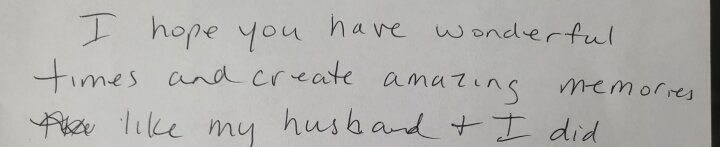 I hope you have wonderful
times and create amazing memories
like my husband + I did